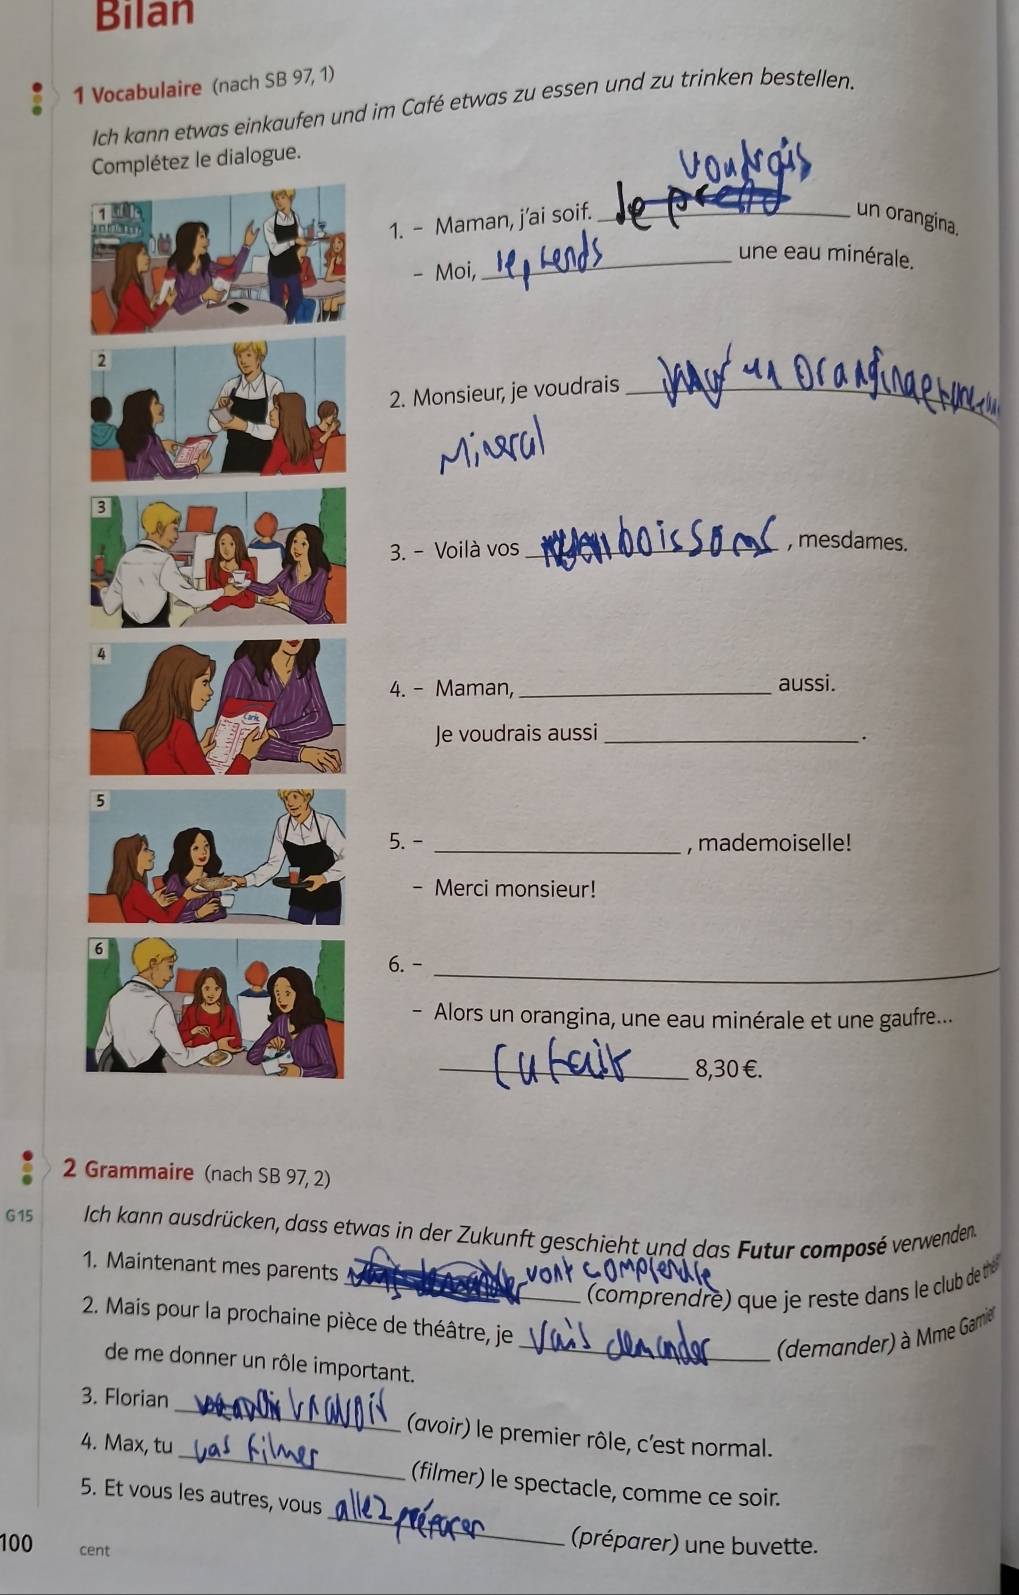 Bilan
1 Vocabulaire (nach SB 97, 1)
Ich kann etwas einkaufen und im Café etwas zu essen und zu trinken bestellen.
Complétez le dialogue.
voudrais
1. - Maman, j'ai soif. Je prend un orangina.
- Moi, je prends une eau minérale.
2. Monsieur, je voudrais un Orangina et une
Mineral
3. - Voilà vos boissons, mesdames.
4. - Maman, aussi.
Je voudrais aussi .
5. - , mademoiselle!
- Merci monsieur!
6. -
- Alors un orangina, une eau minérale et une gaufre...
Cu fait 8,30 €.
2 Grammaire (nach SB 97, 2)
G15 Ich kann ausdrücken, dass etwas in der Zukunft geschieht und das Futur composé verwenden.
1. Maintenant mes parents vont comprendre (comprendre) que je reste dans le club de thé
2. Mais pour la prochaine pièce de théâtre, je vais demander (demander) à Mme Garnier
de me donner un rôle important.
3. Florian va avoir (avoir) le premier rôle, c'est normal.
4. Max, tu vas filmer (filmer) le spectacle, comme ce soir.
5. Et vous les autres, vous allez préparer (préparer) une buvette.
100 cent
1
2
3
4
Carte
5
6